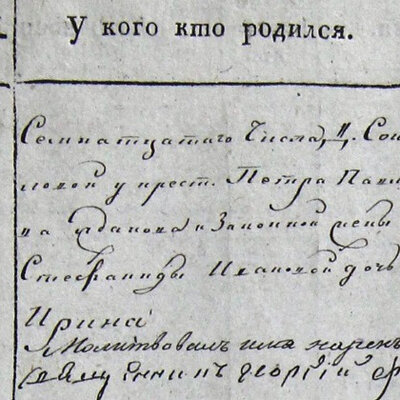 У кого кто родился.
Семнатцатаго Числа, Д. Сок
ловой у крест. Петра Павл
ва и Законной жены
Стефаниды Ивановой дочь
Ирина
Молитвовалъ имя нарек
Священникъ Георгий